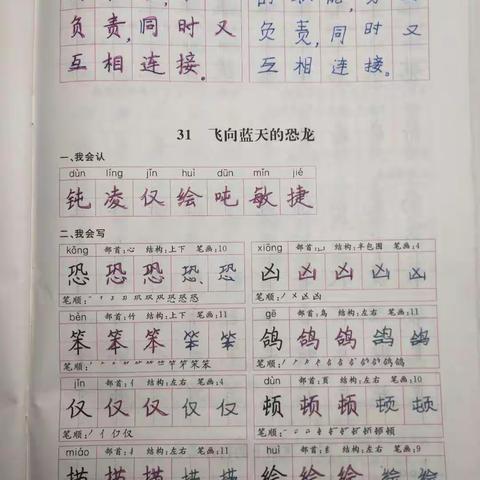 负责,同时又
负责,同时又
互相连接。
互相连接。
31 飞向蓝天的恐龙
一、我会认
dùn líng jǐn huì dūn mǐn jié
钝凌仅绘吨敏捷
二、我会写
kǒng 部首:心 结构:上下 笔画:10
恐恐恐恐恐
xiōng 部首:凵 结构:半包围 笔画:4
凶凶凶凶凶
bèn 部首:竹 结构:上下 笔画:11
笨笨笨笨笨
gē 部首:鸟 结构:左右 笔画:11
鸽鸽鸽鸽鸽
jǐn 部首:亻 结构:左右 笔画:4
仅仅仅仅仅
dùn 部首:页 结构:左右 笔画:10
顿顿顿顿顿
miáo 部首:扌 结构:左右 笔画:11
描描描描描
huì 部首:纟 结构:左右 笔画:9
绘绘绘绘绘